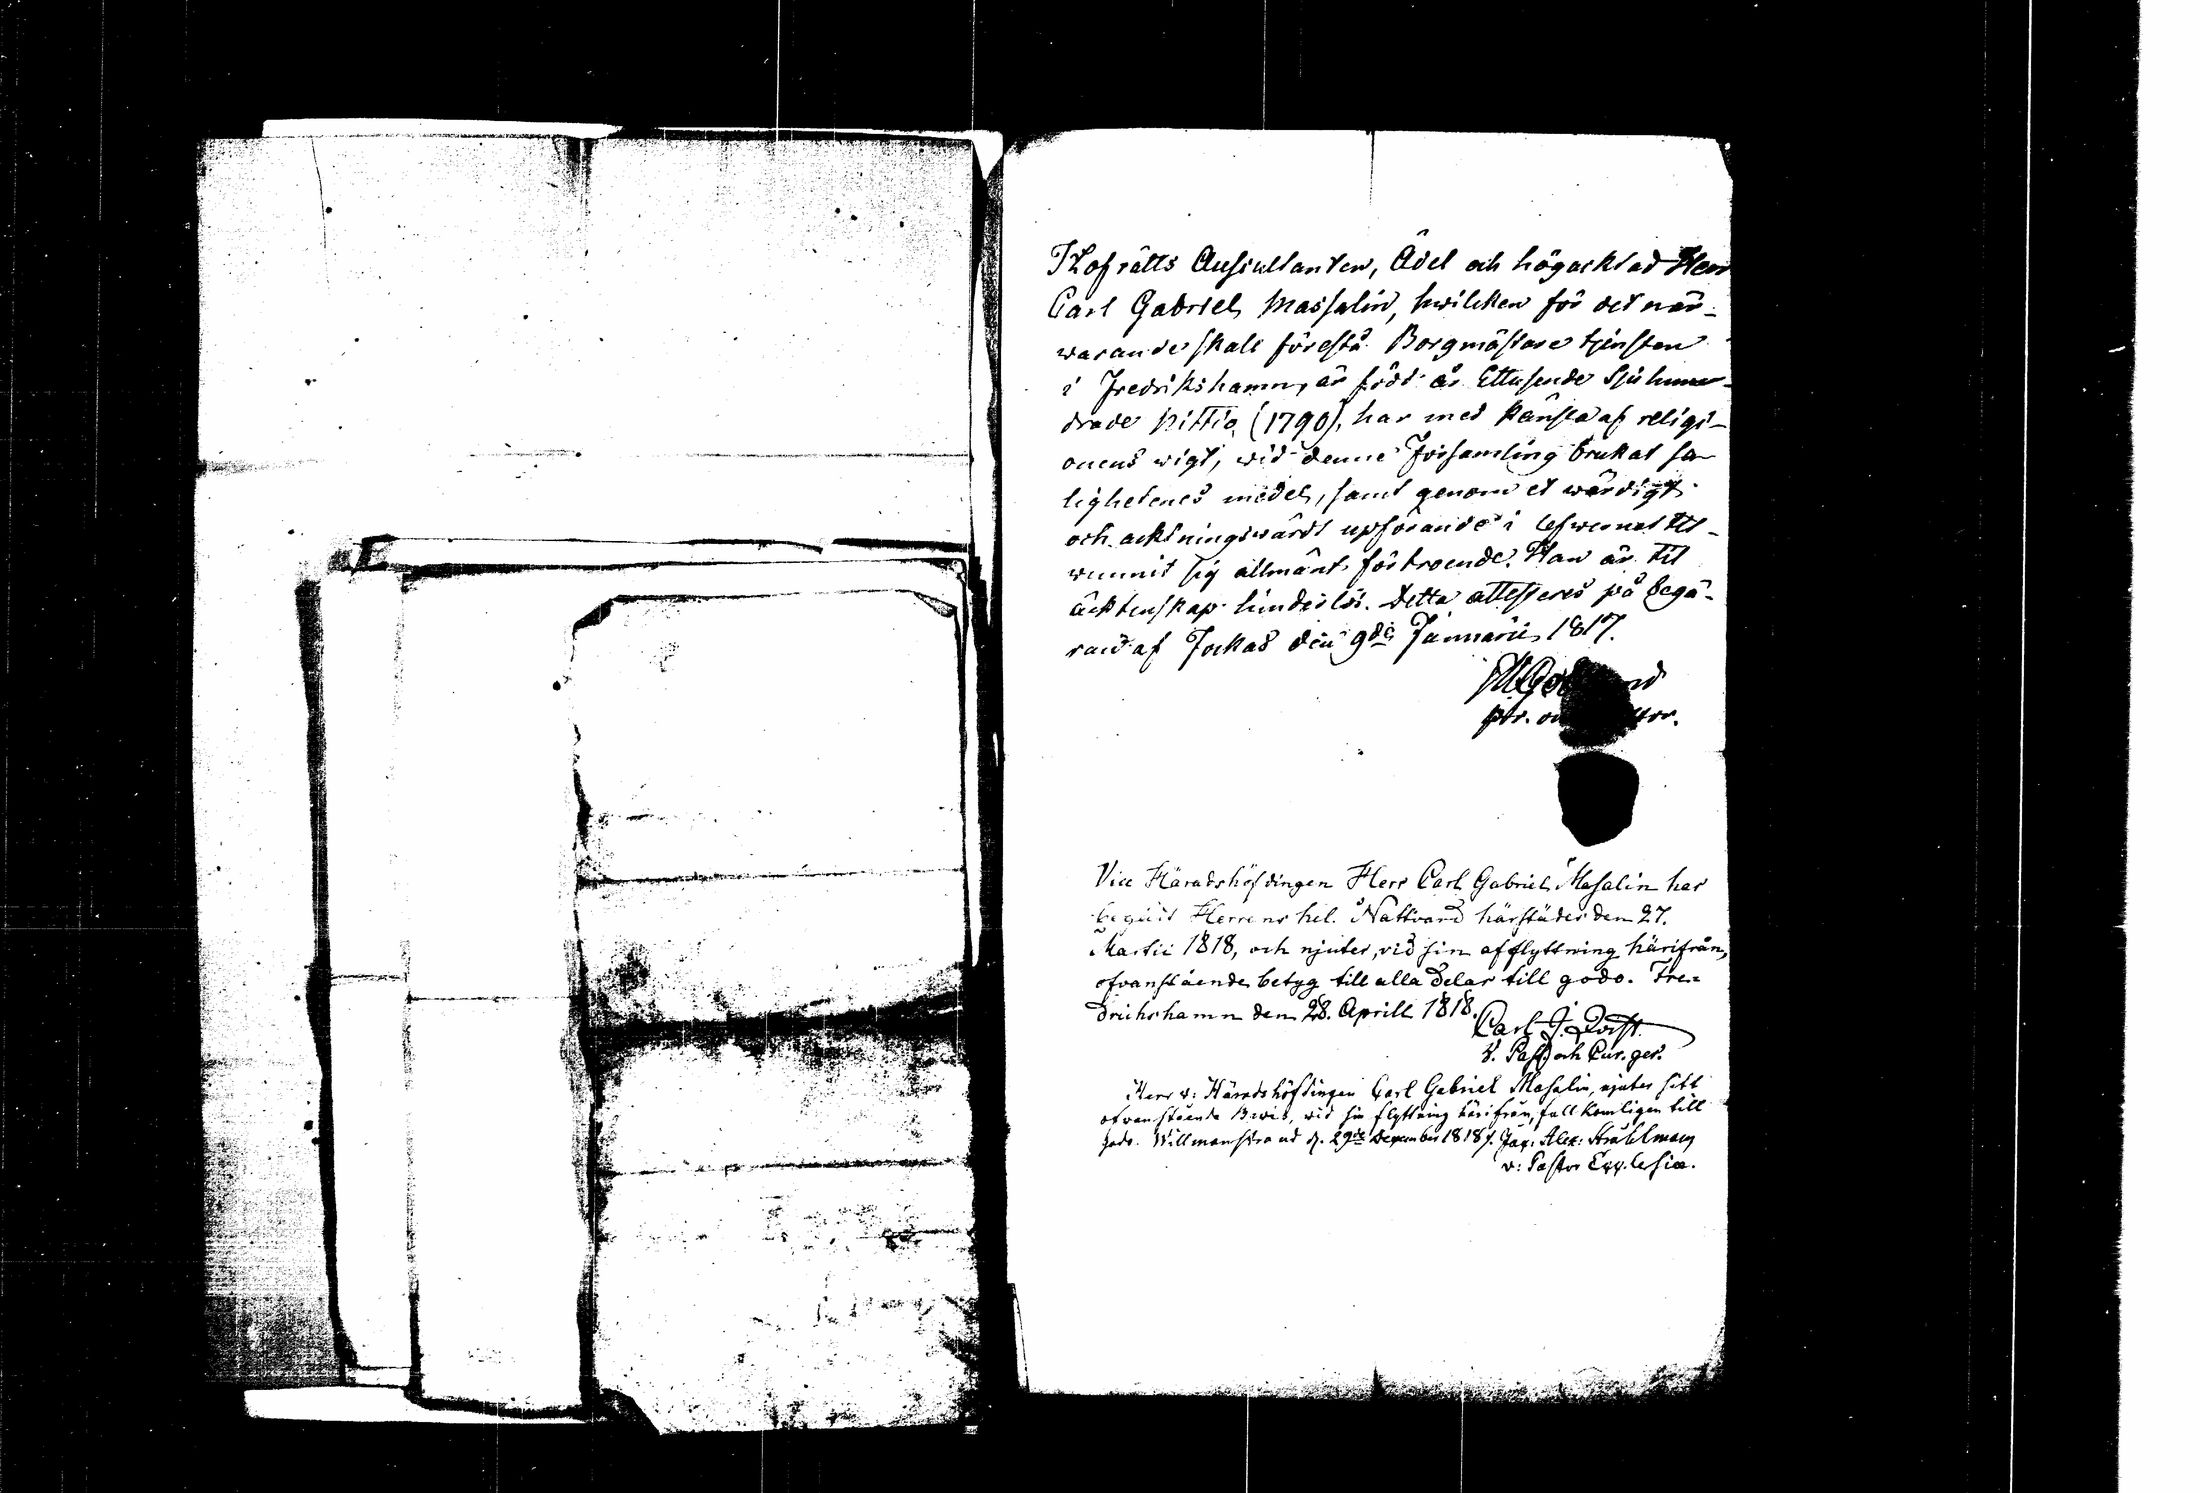 Hofrätts Auscultanten, Ädel och högacktad Herr
Carl Gabriel Massalin, hwilcken för det när-
warande skall förestå Borgmästare tjensten
i Fredrikshamn, är född år Ettusende Sjuhun-
drade Nittio (1790), har med känsla af religi-
onens wigt, wid denne Församling brukat sa-
lighetenes medel, samt genom et wärdigt
och acktningswärdt upförande i lefwernet til-
wunnit sig allmänt förtroende. Han är til
äcktenskap hinderlös. Detta attesteres på begä-
ran af Jockas den 9de Januarii 1817.
Vice Häradshöfdingen Herr Carl Gabriel Masalin har
begått Herrens hel. Nattvard härstädes den 27.
Martii 1818, och njuter, vid sin afflyttning härifrån,
ofvanstående betyg till alla delar till godo. Fre-
drichshamn den 28. Aprill 1818.
Carl J.
V. Past. och Cur. ger.
Herr v: Häradshöfdingen Carl Gabriel Masalin, njuter sitt
ofvanstående Bewis, wid sin flyttning härifrån, fullkomligen till
godo. Willmanstrand d. 29de December 1818. Jac: Alex: Strählman
v: Pastor Ecclesiæ.